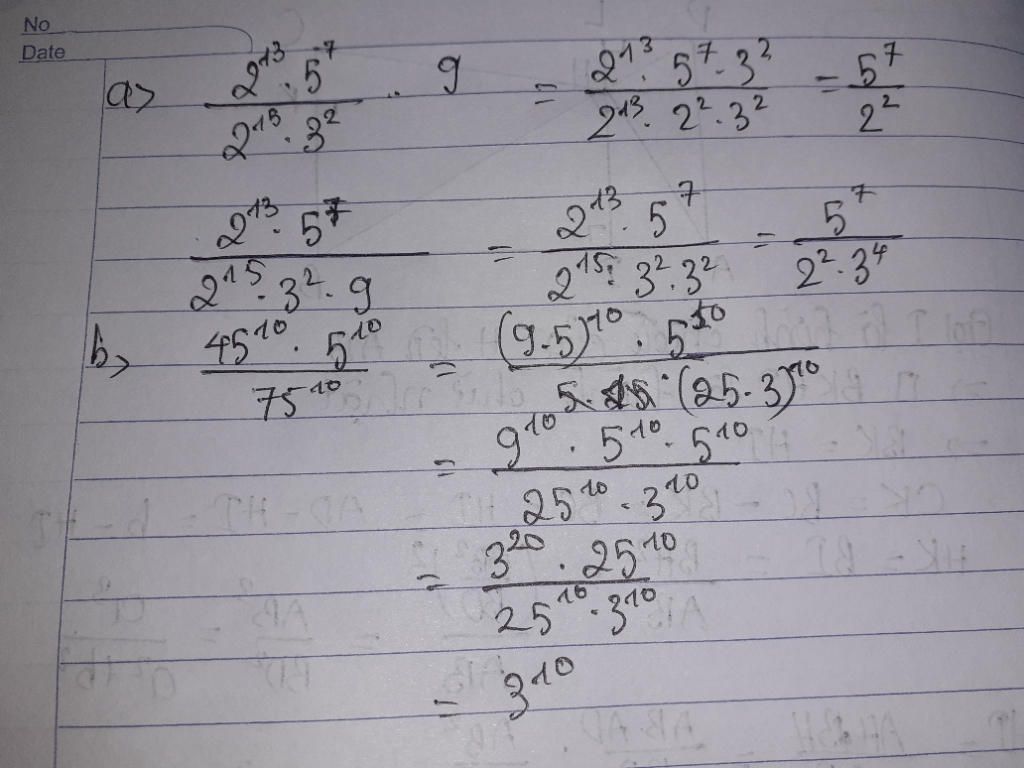 No
Date
a> \frac{2^{13} \cdot 5^7}{2^{15} \cdot 3^2} \cdot 9 = \frac{2^{13} \cdot 5^7 \cdot 3^2}{2^{13} \cdot 2^2 \cdot 3^2} = \frac{5^7}{2^2}
\frac{2^{13} \cdot 5^7}{2^{15} \cdot 3^2 \cdot 9} = \frac{2^{13} \cdot 5^7}{2^{15} \cdot 3^2 \cdot 3^2} = \frac{5^7}{2^2 \cdot 3^4}
b> \frac{45^{10} \cdot 5^{10}}{75^{10}} = \frac{(9 \cdot 5)^{10} \cdot 5^{10}}{(25 \cdot 3)^{10}}
= \frac{9^{10} \cdot 5^{10} \cdot 5^{10}}{25^{10} \cdot 3^{10}}
= \frac{3^{20} \cdot 25^{10}}{25^{10} \cdot 3^{10}}
= 3^{10}